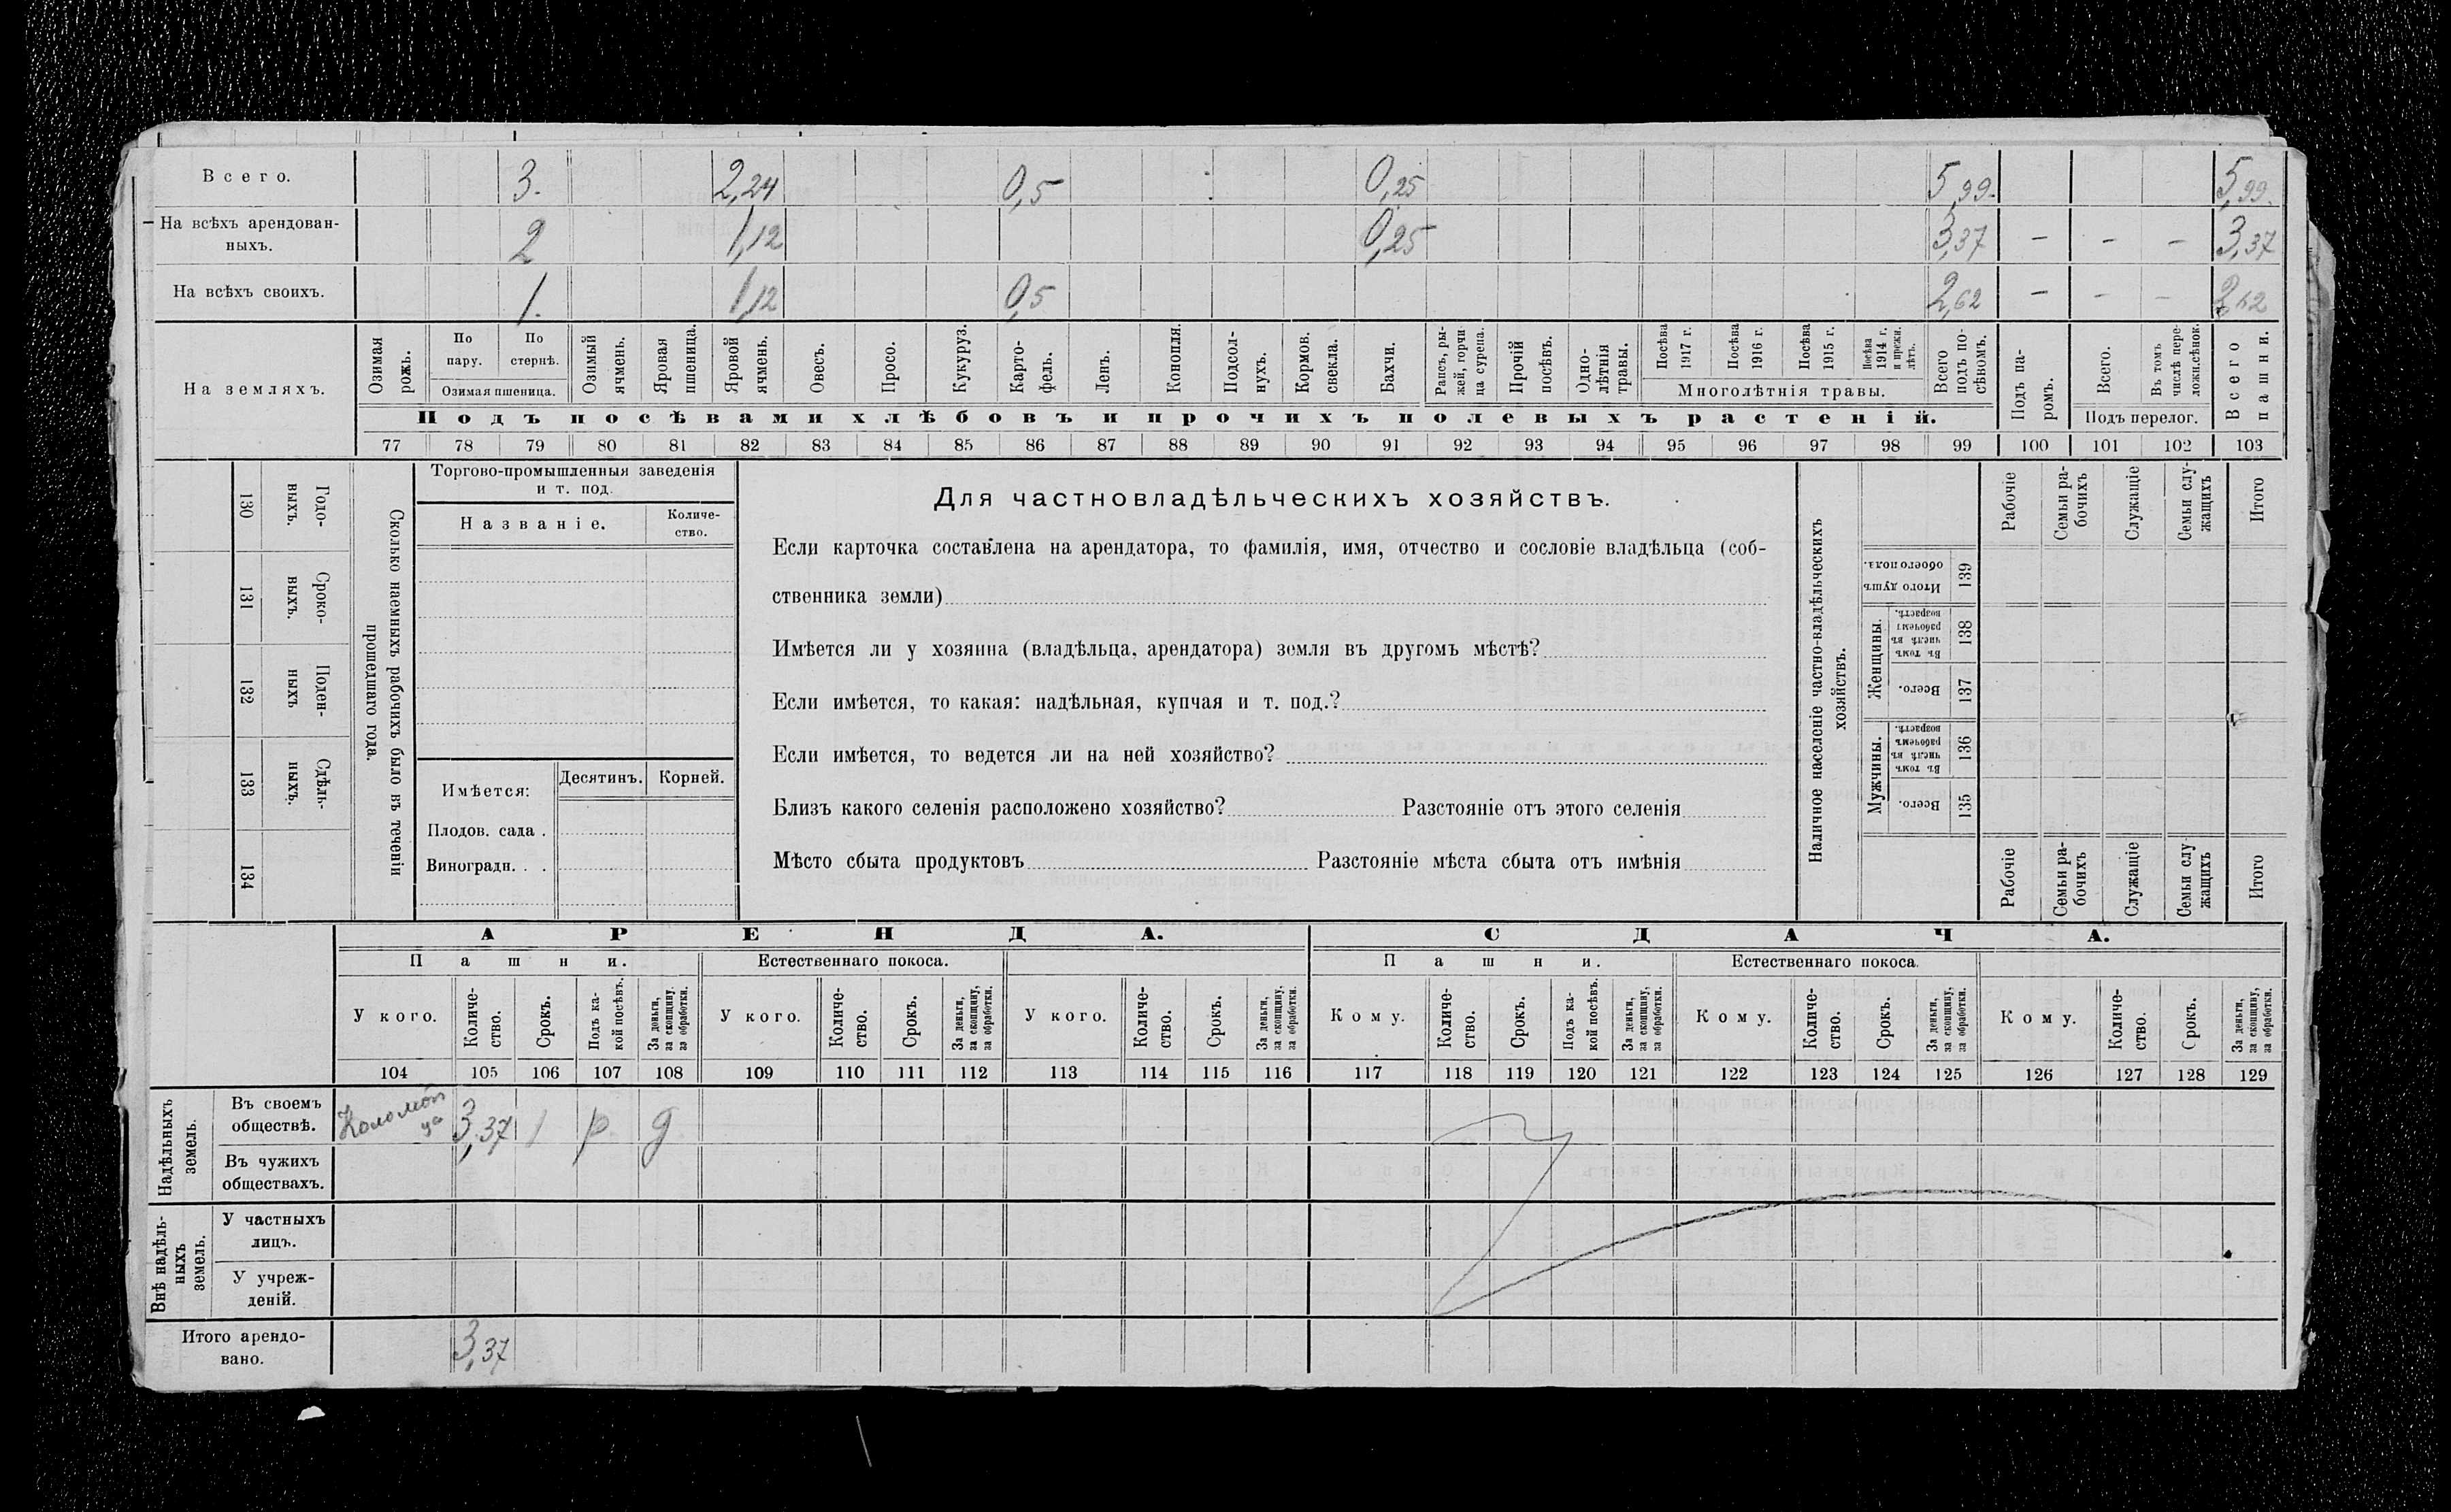 Всего. 3. 2,24 0,5 0,25 5,99. 5,99.
На всѣхъ арендован-
ныхъ. 2 1,12 0,25 3,37 — — — 3,37
На всѣхъ своихъ. 1. 1,12 0,5 2,62 — — — 2,62
На земляхъ.
Озимая
рожь.
По
пару.
По
стернѣ.
Озимая пшеница.
Озимый
ячмень.
Яровая
пшеница.
Яровой
ячмень.
Овесъ.
Просо.
Кукуруз.
Карто-
фель.
Ленъ.
Конопля.
Подсол-
нухъ.
Кормов.
свекла.
Бахчи.
Рапсъ, ры-
жей, горчи
ца сурепа.
Прочій
посѣвъ.
Одно-
лѣтнія
травы.
Посѣва
1917 г.
Посѣва
1916 г.
Посѣва
1915 г.
Посѣва
1914 г.
и прежн.
лѣтъ.
Многолѣтнія травы.
Всего
подъ по-
сѣвомъ.
Подъ па-
ромъ.
Всего.
Въ томъ
числѣ пере-
ложн.сѣнок.
Подъ перелог.
Всего
пашни.
Подъ посѣвами хлѣбовъ и прочихъ полевыхъ растеній.
77 78 79 80 81 82 83 84 85 86 87 88 89 90 91 92 93 94 95 96 97 98 99 100 101 102 103
130 Годо-
выхъ.
131 Сроко-
выхъ.
132 Поден-
ныхъ
133 Сдѣль-
ныхъ.
134
Сколько наемныхъ рабочихъ было въ теченіи
прошедшаго года.
Торгово-промышленныя заведенія
и т. под.
Названіе.
Количе-
ство.
Имѣется: Десятинъ. Корней.
Плодов. сада .
Виноградн. . .
Для частновладѣльческихъ хозяйствъ.
Если карточка составлена на арендатора, то фамилія, имя, отчество и сословіе владѣльца (соб-
ственника земли)
Имѣется ли у хозяина (владѣльца, арендатора) земля въ другомъ мѣстѣ?
Если имѣется, то какая: надѣльная, купчая и т. под.?
Если имѣется, то ведется ли на ней хозяйство?
Близъ какого селенія расположено хозяйство? Разстояніе отъ этого селенія
Мѣсто сбыта продуктовъ Разстояніе мѣста сбыта отъ имѣнія
Наличное населеніе частно-владѣльческихъ
хозяйствъ.
Рабочіе
Семьи ра-
бочихъ
Служащіе
Семьи слу-
жащихъ
Итого
Итого душъ
обоего пола.
139
Женщины.
Въ томъ
числѣ въ
рабочемъ
возрастѣ.
138
Всего.
137
Мужчины.
Въ томъ
числѣ въ
рабочемъ
возрастѣ.
136
Всего.
135
Рабочіе
Семьи ра-
бочихъ
Служащіе
Семьи слу
жащихъ
Итого
АРЕНДА. СДАЧА.
Пашни. Естественнаго покоса. Пашни. Естественнаго покоса.
У кого.
Количе-
ство.
Срокъ.
Подъ ка-
кой посѣвъ.
За деньги,
за скопщину,
за обработки.
У кого.
Количе-
ство.
Срокъ.
За деньги,
за скопщину,
за обработки.
У кого.
Количе-
ство.
Срокъ.
За деньги,
за скопщину,
за обработки.
Кому.
Количе-
ство.
Срокъ.
Подъ ка-
кой посѣвъ.
За деньги,
за скопщину,
за обработки.
Кому.
Количе-
ство.
Срокъ.
За деньги,
за скопщину,
за обработки.
Кому.
Количе-
ство.
Срокъ.
За деньги,
за скопщину,
за обработки.
104 105 106 107 108 109 110 111 112 113 114 115 116 117 118 119 120 121 122 123 124 125 126 127 128 129
Надѣльныхъ
земель.
Въ своемъ
обществѣ. 3,37 1 р д
Въ чужихъ
обществахъ.
Внѣ надѣль-
ныхъ
земель.
У частныхъ
лицъ.
У учреж-
деній.
Итого арендо-
вано. 3,37